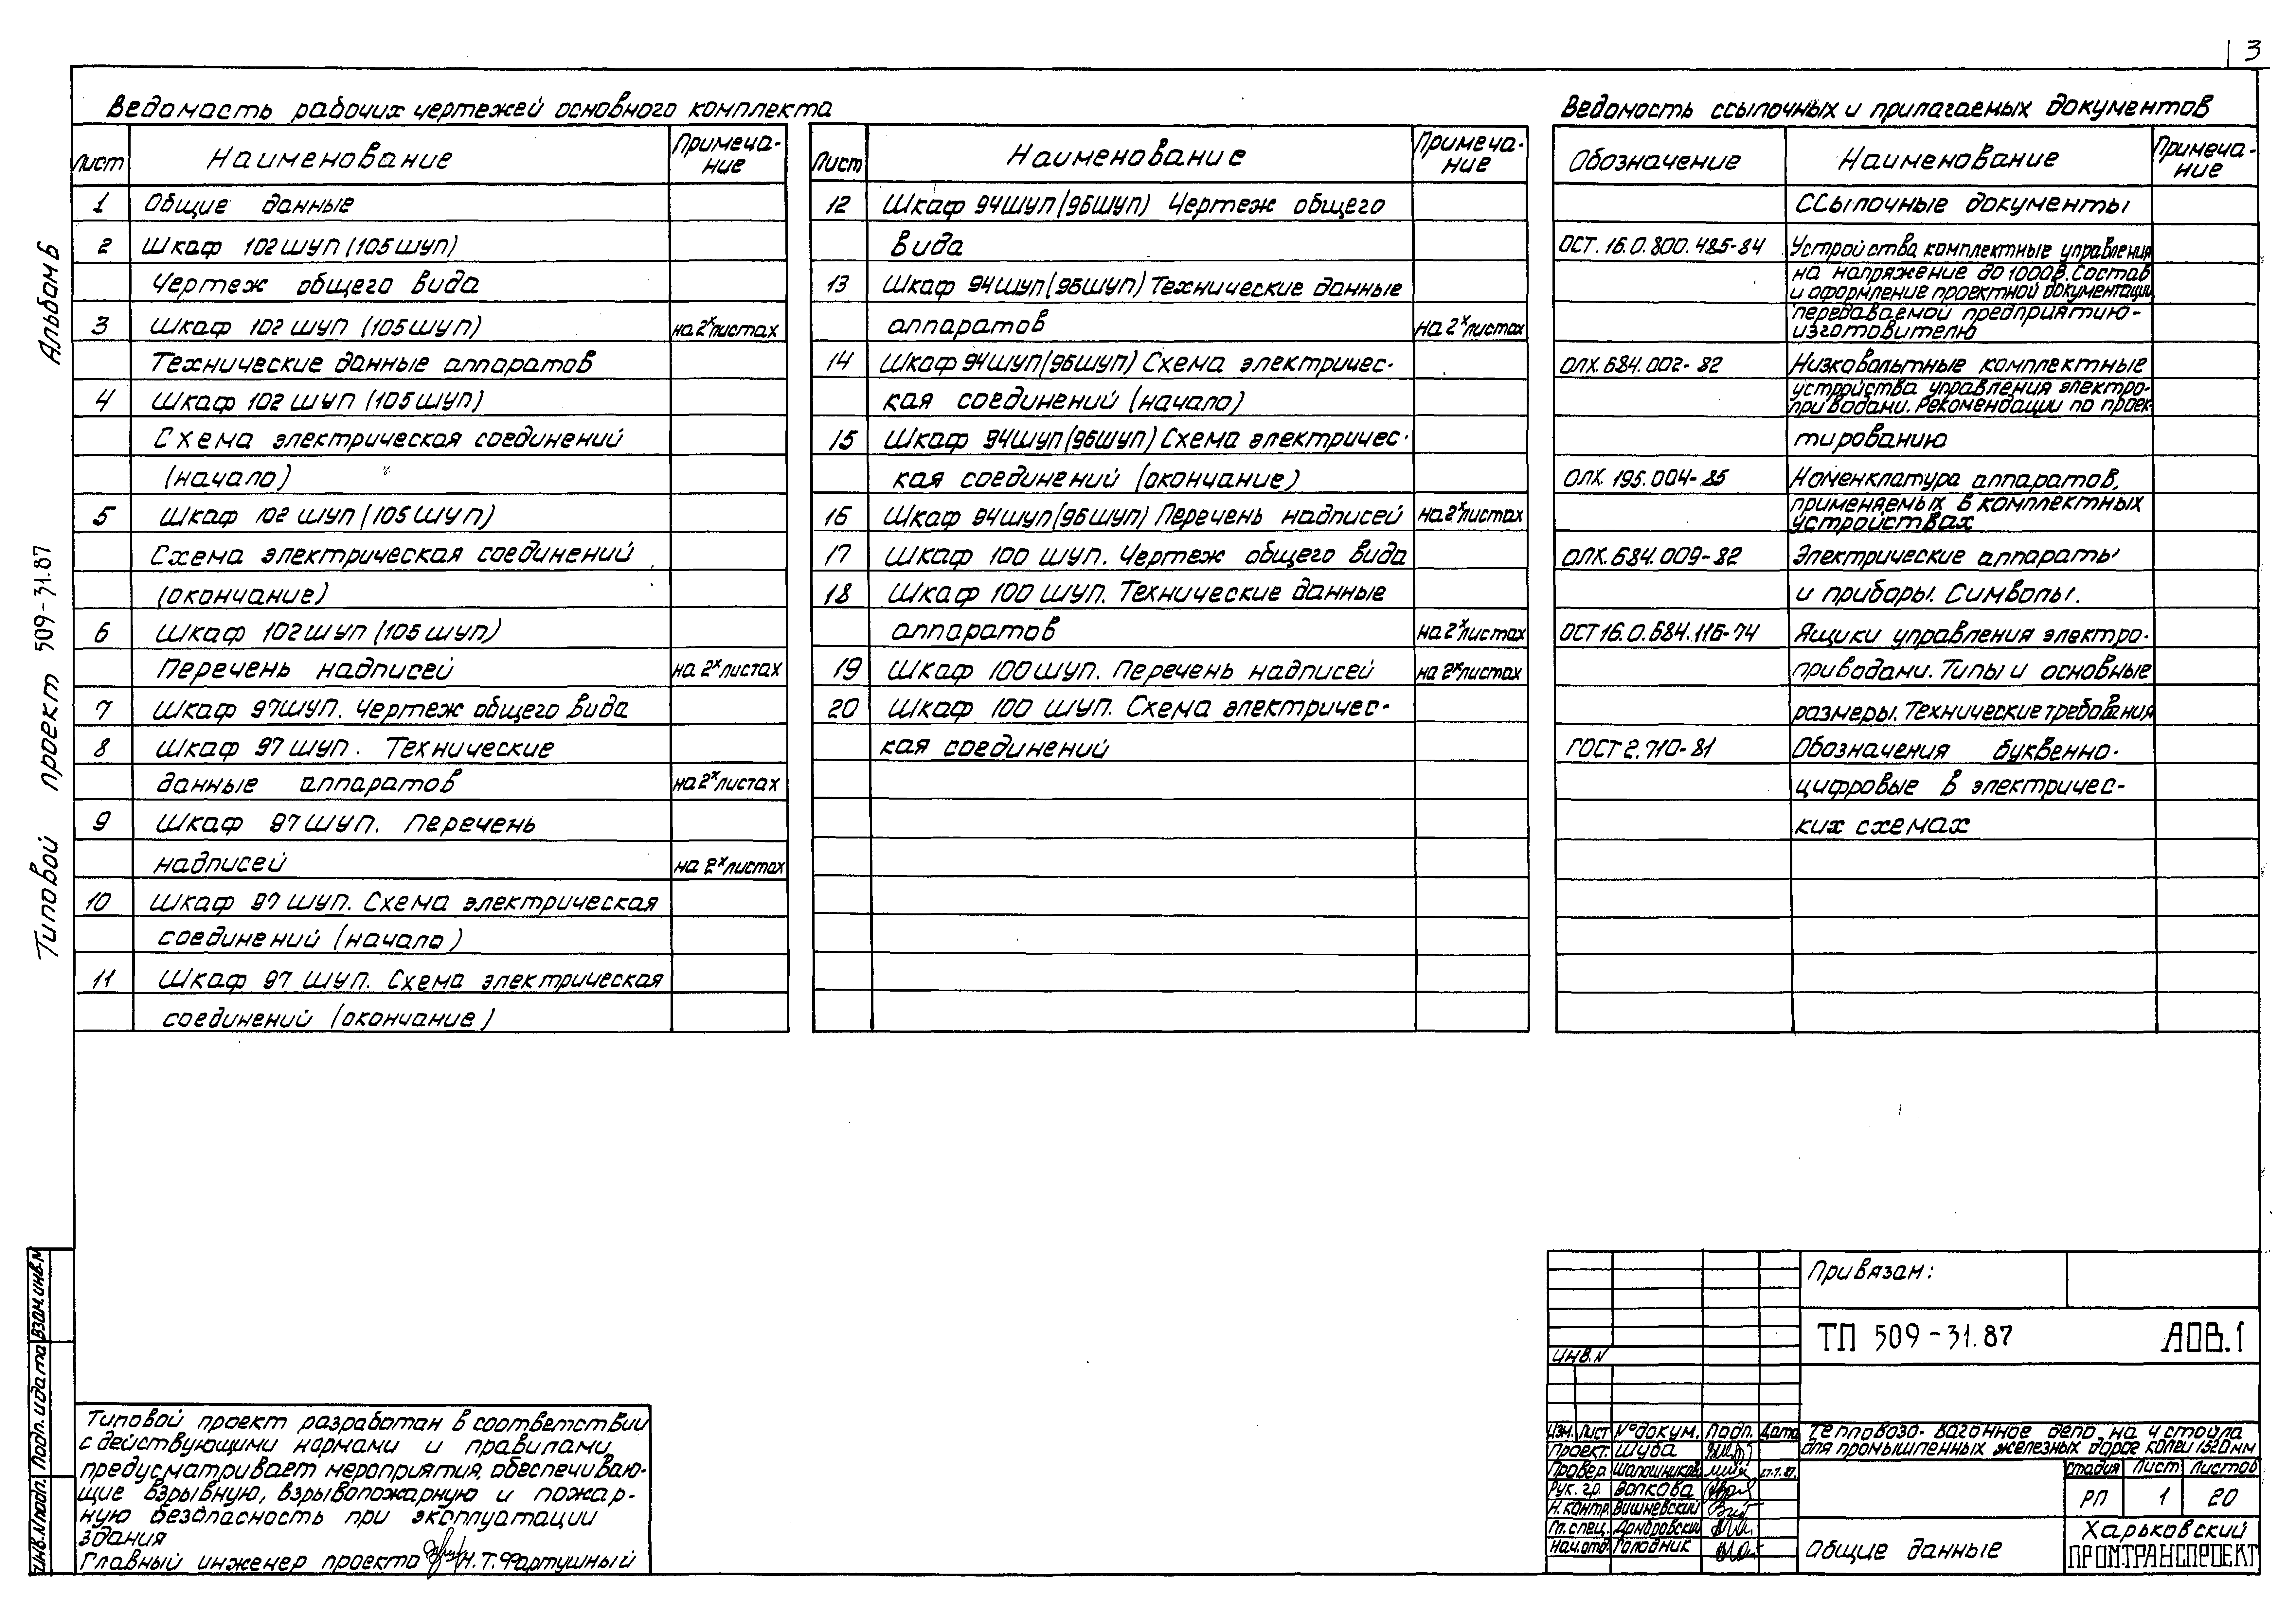 3
Ведомость рабочих чертежей основного комплекта
Лист Наименование Примеча-
ние
1 Общие данные
2 Шкаф 102 ШУП (105 ШУП)
Чертеж общего вида
3 Шкаф 102 ШУП (105 ШУП) на 2х листах
Технические данные аппаратов
4 Шкаф 102 ШУП (105 ШУП)
Схема электрическая соединений
(начало)
5 Шкаф 102 ШУП (105 ШУП)
Схема электрическая соединений
(окончание)
6 Шкаф 102 ШУП (105 ШУП)
Перечень надписей на 2х листах
7 Шкаф 97ШУП. Чертеж общего вида
8 Шкаф 97 ШУП. Технические
данные аппаратов на 2х листах
9 Шкаф 97 ШУП. Перечень
надписей на 2х листах
10 Шкаф 97 ШУП. Схема электрическая
соединений (начало)
11 Шкаф 97 ШУП. Схема электрическая
соединений (окончание)
Лист Наименование Примеча-
ние
12 Шкаф 94ШУП (96ШУП) Чертеж общего
вида
13 Шкаф 94ШУП (96ШУП) Технические данные
аппаратов на 2х листах
14 Шкаф 94ШУП (96ШУП) Схема электричес-
кая соединений (начало)
15 Шкаф 94ШУП (96ШУП) Схема электричес-
кая соединений (окончание)
16 Шкаф 94ШУП (96ШУП) Перечень надписей на 2х листах
17 Шкаф 100 ШУП. Чертеж общего вида
18 Шкаф 100 ШУП. Технические данные
аппаратов на 2х листах
19 Шкаф 100 ШУП. Перечень надписей на 2х листах
20 Шкаф 100 ШУП. Схема электричес-
кая соединений
Ведомость ссылочных и прилагаемых документов
Обозначение Наименование Примеча-
ние
Ссылочные документы
ОСТ.16.0.800.485-84 Устройства комплектные управления
на напряжение до 1000В. Состав
и оформление проектной документации,
передаваемой предприятию-
изготовителю
ОЛХ.684.002-82 Низковольтные комплектные
устройства управления электро-
приводами. Рекомендации по проек-
тированию
ОЛХ.195.004-85 Номенклатура аппаратов,
применяемых в комплектных
устройствах
ОЛХ.684.009-82 Электрические аппараты
и приборы. Символы.
ОСТ16.0.684.116-74 Ящики управления электро-
приводами. Типы и основные
размеры. Технические требования
ГОСТ 2.710-81 Обозначения буквенно-
цифровые в электричес-
ких схемах
Типовой проект 509-31.87 Альбом 6
Взам.инв.N
Подп. и дата
Инв.N подл.
Типовой проект разработан в соответствии
с действующими нормами и правилами,
предусматривает мероприятия, обеспечиваю-
щие взрывную, взрывопожарную и пожар-
ную безопасность при эксплуатации
здания
Главный инженер проекта Н.Т. Фартушный
Привязан:
ИНВ.N
ТП 509-31.87 АОВ.1
Изм. Лист N°докум. Подп. Дата
Проект. Шуба
Провер. Шапошникова 27.7.87.
Рук. гр. Волкова
Н.контр. Вишневский
Гл.спец. Домбровский
Нач.отд. Голодник
Тепловозо-вагонное депо на 4 стойла
для промышленных железных дорог колеи 1520мм
Стадия Лист Листов
РП 1 20
Общие данные
Харьковский
ПРОМТРАНСПРОЕКТ